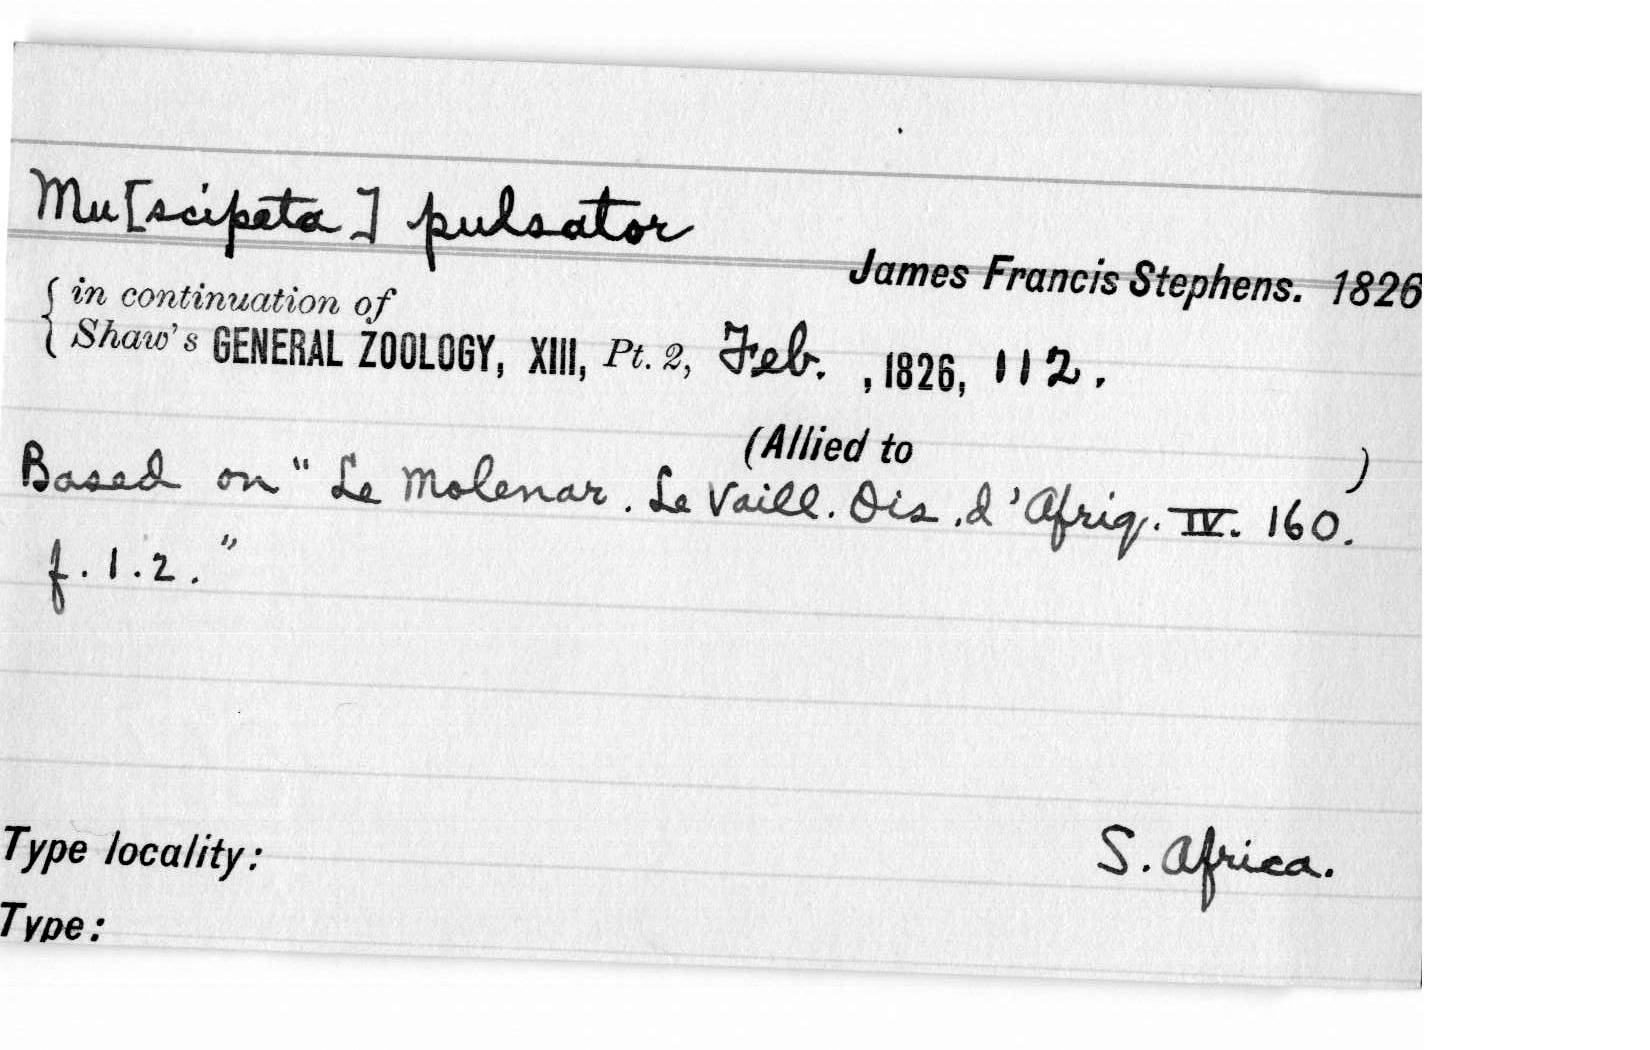 Mu[scipeta] pulsator
James Francis Stephens. 1826
{ in continuation of
Shaw's GENERAL ZOOLOGY, XIII, Pt. 2, Feb. , 1826, 112.
(Allied to )
Based on "Le Molenar. Le Vaill. Ois. d'Afriq. IV. 160.
f. 1. 2."
Type locality: S. Africa.
Type: